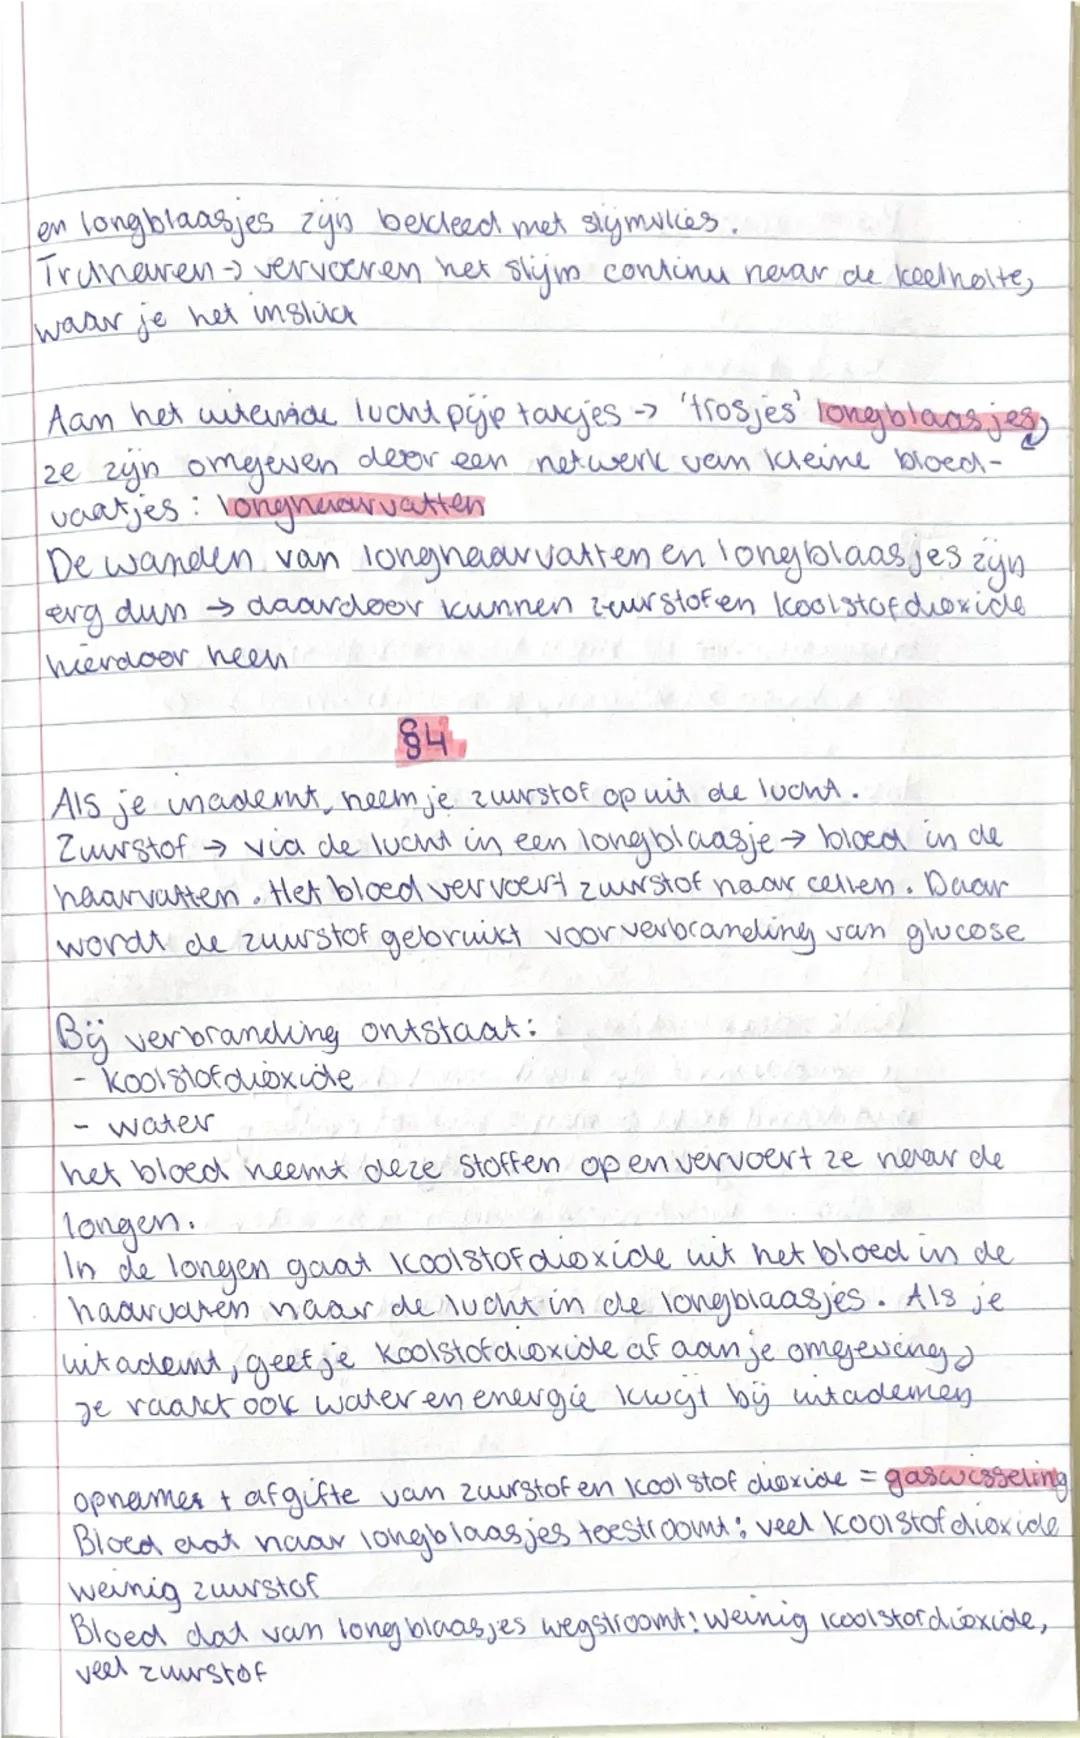 en longblaasjes zijn bekleed met slijmvlies.
Trilharen → vervoeren het slijm continu naar de keelholte,
waar je het inslikt
Aan het uiteinde luchtpijp takjes → 'trosjes' longblaasjes,
ze zijn omgeven door een netwerk van kleine bloed-
vaatjes: longhaarvatten
De wanden van longhaarvatten en longblaasjes zijn
erg dun → daardoor kunnen zuurstof en koolstofdioxide
hierdoor heen
§4
Als je inademt, neem je zuurstof op uit de lucht.
Zuurstof → via de lucht in een longblaasje → bloed in de
haarvatten. Het bloed vervoert zuurstof naar cellen. Daar
wordt de zuurstof gebruikt voor verbranding van glucose
Bij verbranding ontstaat:
- koolstofdioxide
- water
het bloed neemt deze stoffen op en vervoert ze naar de
longen.
In de longen gaat koolstofdioxide uit het bloed in de
haarvaten naar de lucht in de longblaasjes. Als je
uitademt, geef je koolstofdioxide af aan je omgeving,
je raakt ook water en energie kwijt bij uitademen
opnames + afgifte van zuurstof en koolstofdioxide = gaswisseling
Bloed dat naar longblaasjes toestroomt: veel koolstofdioxide
weinig zuurstof
Bloed dat van longblaasjes wegstroomt: weinig koolstofdioxide,
veel zuurstof